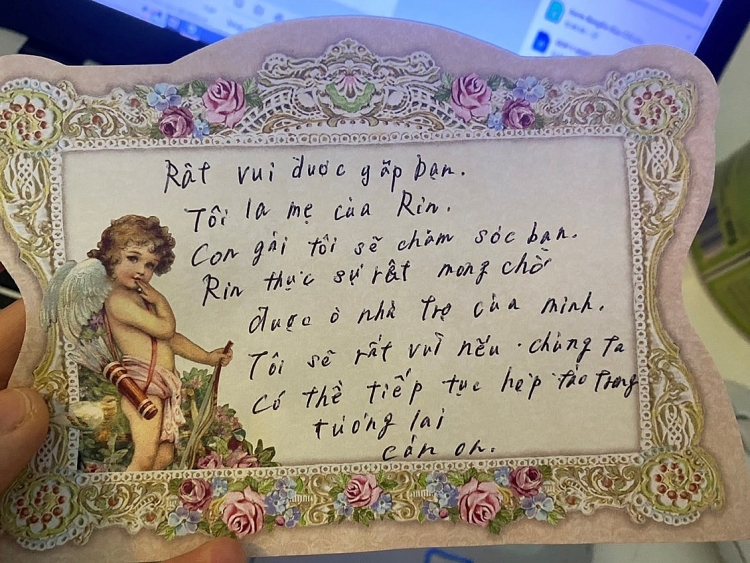 Rất vui được gặp bạn.
Tôi la mẹ của Rin.
Con gái tôi sẽ chăm sóc bạn.
Rin thực sự rất mong chờ
được ở nhà trọ của mình.
Tôi sẽ rất vui nếu chúng ta
Có thể tiếp tục hợp tác trong
tương lai
cản ơn.